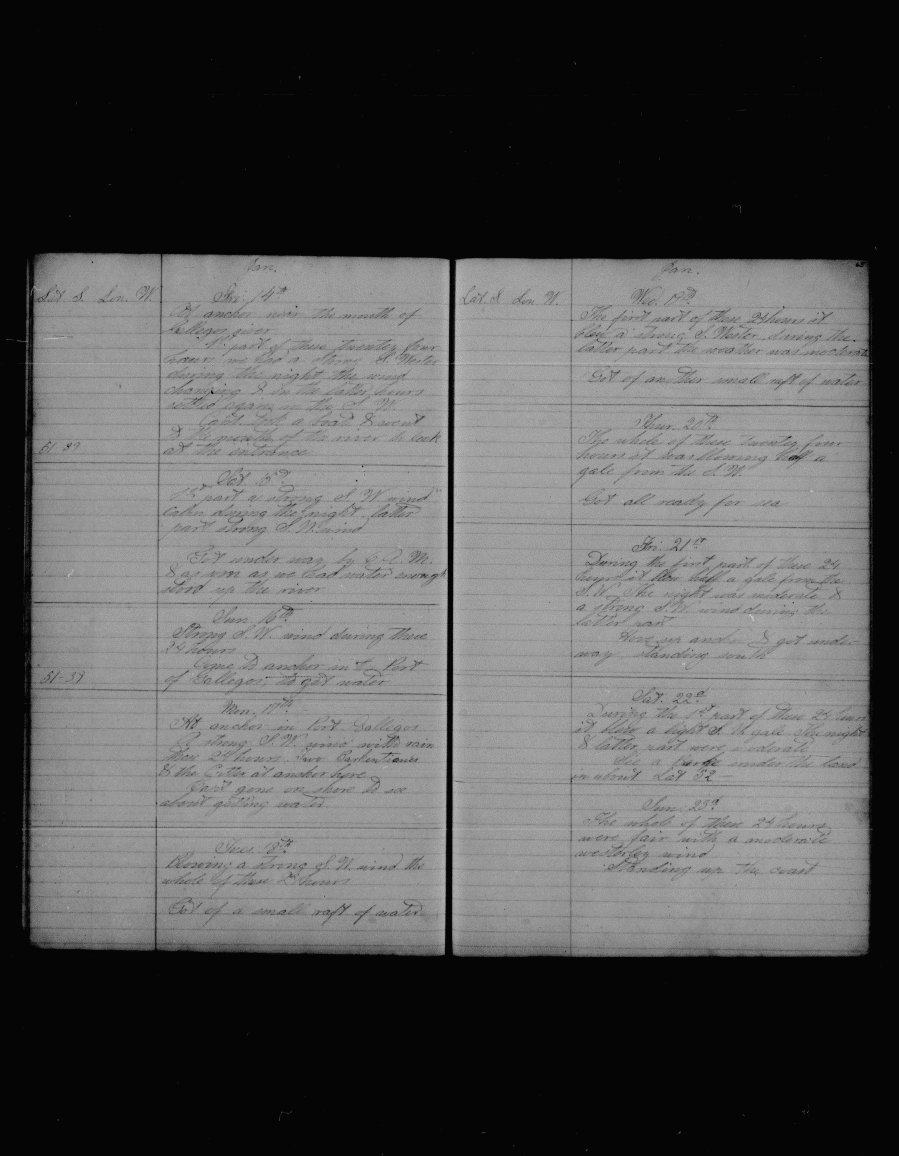 Jan.
Lat. S. Lon. W.
Fri. 14th
At anchor near the mouth of
Gallegos river
1st part of these twenty four
hours we had a strong S. Wester
during the night the wind
changing & in the latter hours
settled again in the S. W.
Capt. took a boat & went
to the mouth of the river to look
at the entrance
51-39
Sat. 15th
1st part a strong S. W. wind
calm during the night, latter
part strong S. W. wind
Got under way by 6 A. M.
& as soon as we had water enough
stood up the river
Sun. 16th
Strong S. W. wind during these
24 hours
Come to anchor in Port
of Gallegos to get water
51-39
Mon. 17th
At anchor in Port Gallegos
A strong S. W. wind with rain
these 24 hours. Two
& the Cutter at anchor here
Capt gone on shore to see
about getting water
Tues. 18th
Blowing a strong S. W. wind the
whole of these 24 hours
Got of a small raft of water
Jan.
Lat. S. Lon. W.
Wed. 19th
The first part of these 24 hours it
blew a strong S. Wester during the
latter part the weather was moderate
Got of another small raft of water
Thur. 20th
The whole of these twenty four
hours it was blowing half a
gale from the S. W.
Got all ready for sea
Fri. 21st
During the first part of these 24
hours it blew half a gale from the
S. W. The night was moderate &
a strong S. W. wind during the
latter part
Hove up anchor & got under-
way standing south
Sat. 22d
During the 1st part of these 24 hours
it blew a light S. W. gale. The night
& latter part were moderate
See a barke under the land
in about Lat 52 —
Sun. 23d
The whole of these 24 hours
were fair with a moderate
westerley wind
Standing up the coast